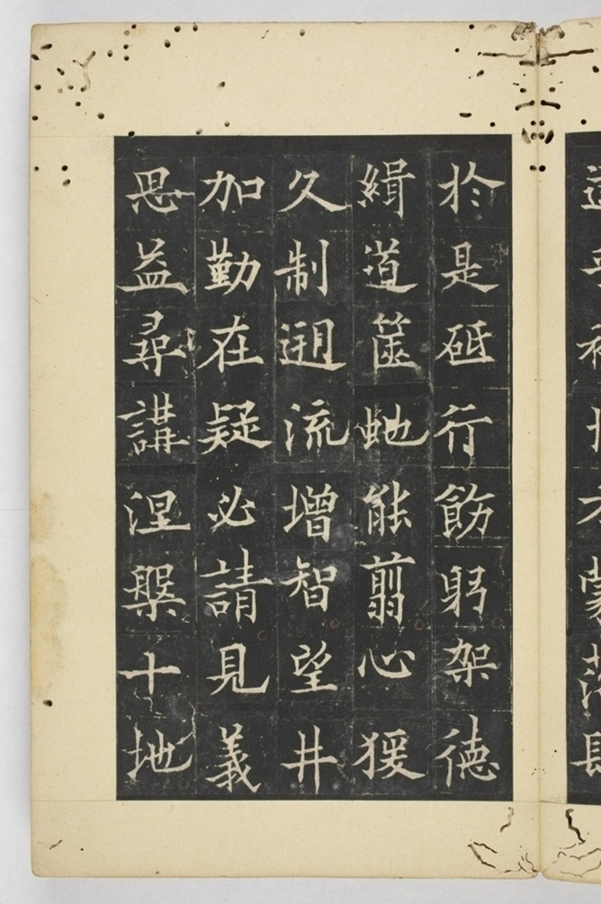 於是砥行飭躬架德
緝道篋虵能翦心猨
久制遡流增智望井
加勤在疑必請見義
思益尋講涅槃十地